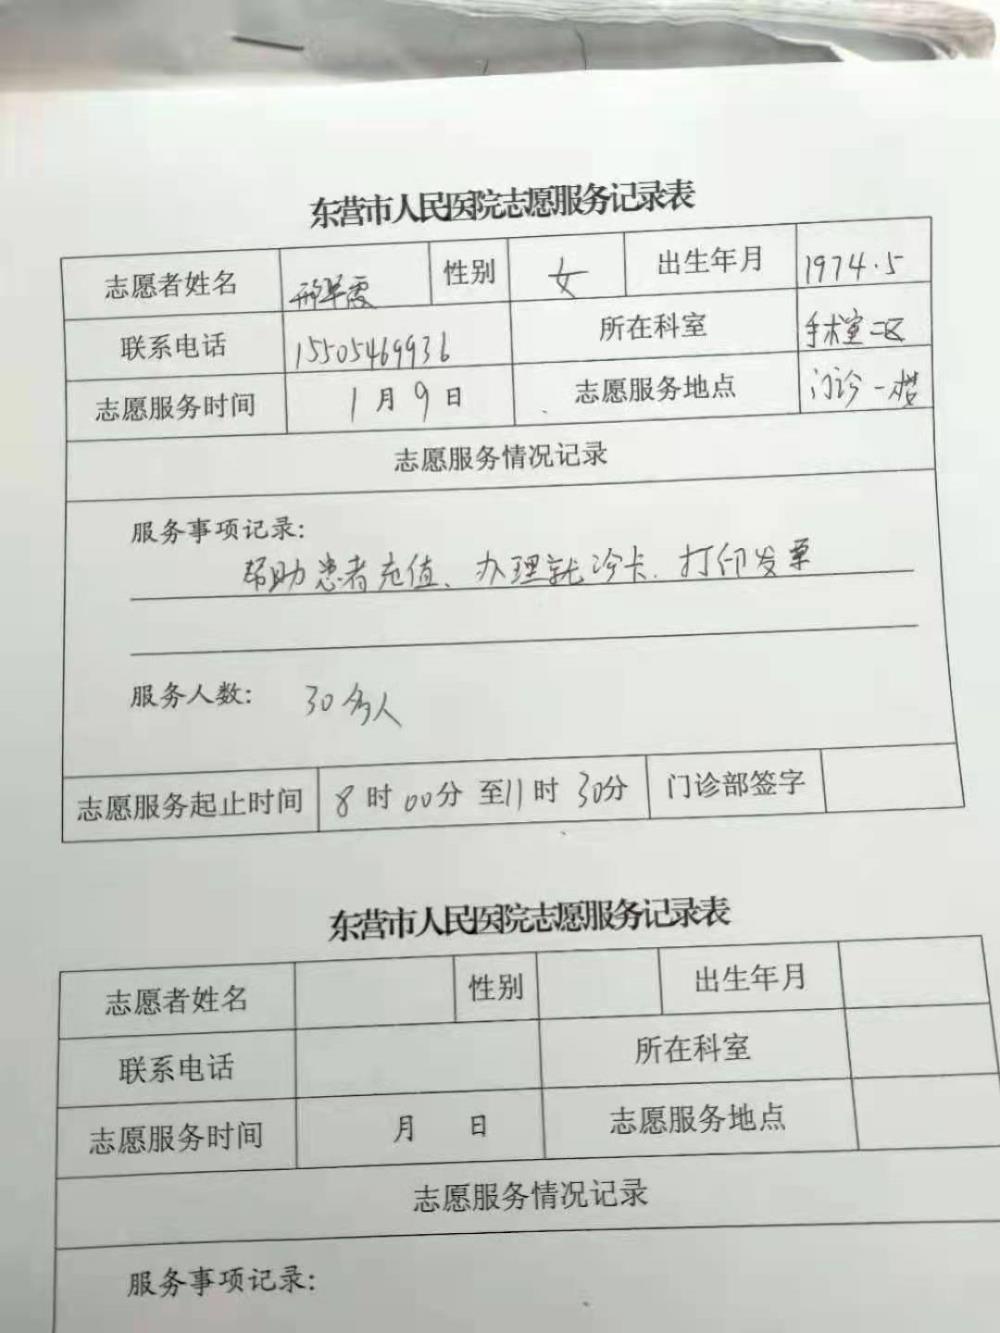 东营市人民医院志愿服务记录表
志愿者姓名 性别 女 出生年月 1974.5
联系电话 15505469936 所在科室 手术室二区
志愿服务时间 1月9日 志愿服务地点 门诊一楼
志愿服务情况记录
服务事项记录:
帮助患者充值、办理就诊卡、打印发票
服务人数: 30多人
志愿服务起止时间 8时00分至11时30分 门诊部签字
东营市人民医院志愿服务记录表
志愿者姓名 性别 出生年月
联系电话 所在科室
志愿服务时间 月 日 志愿服务地点
志愿服务情况记录
服务事项记录: